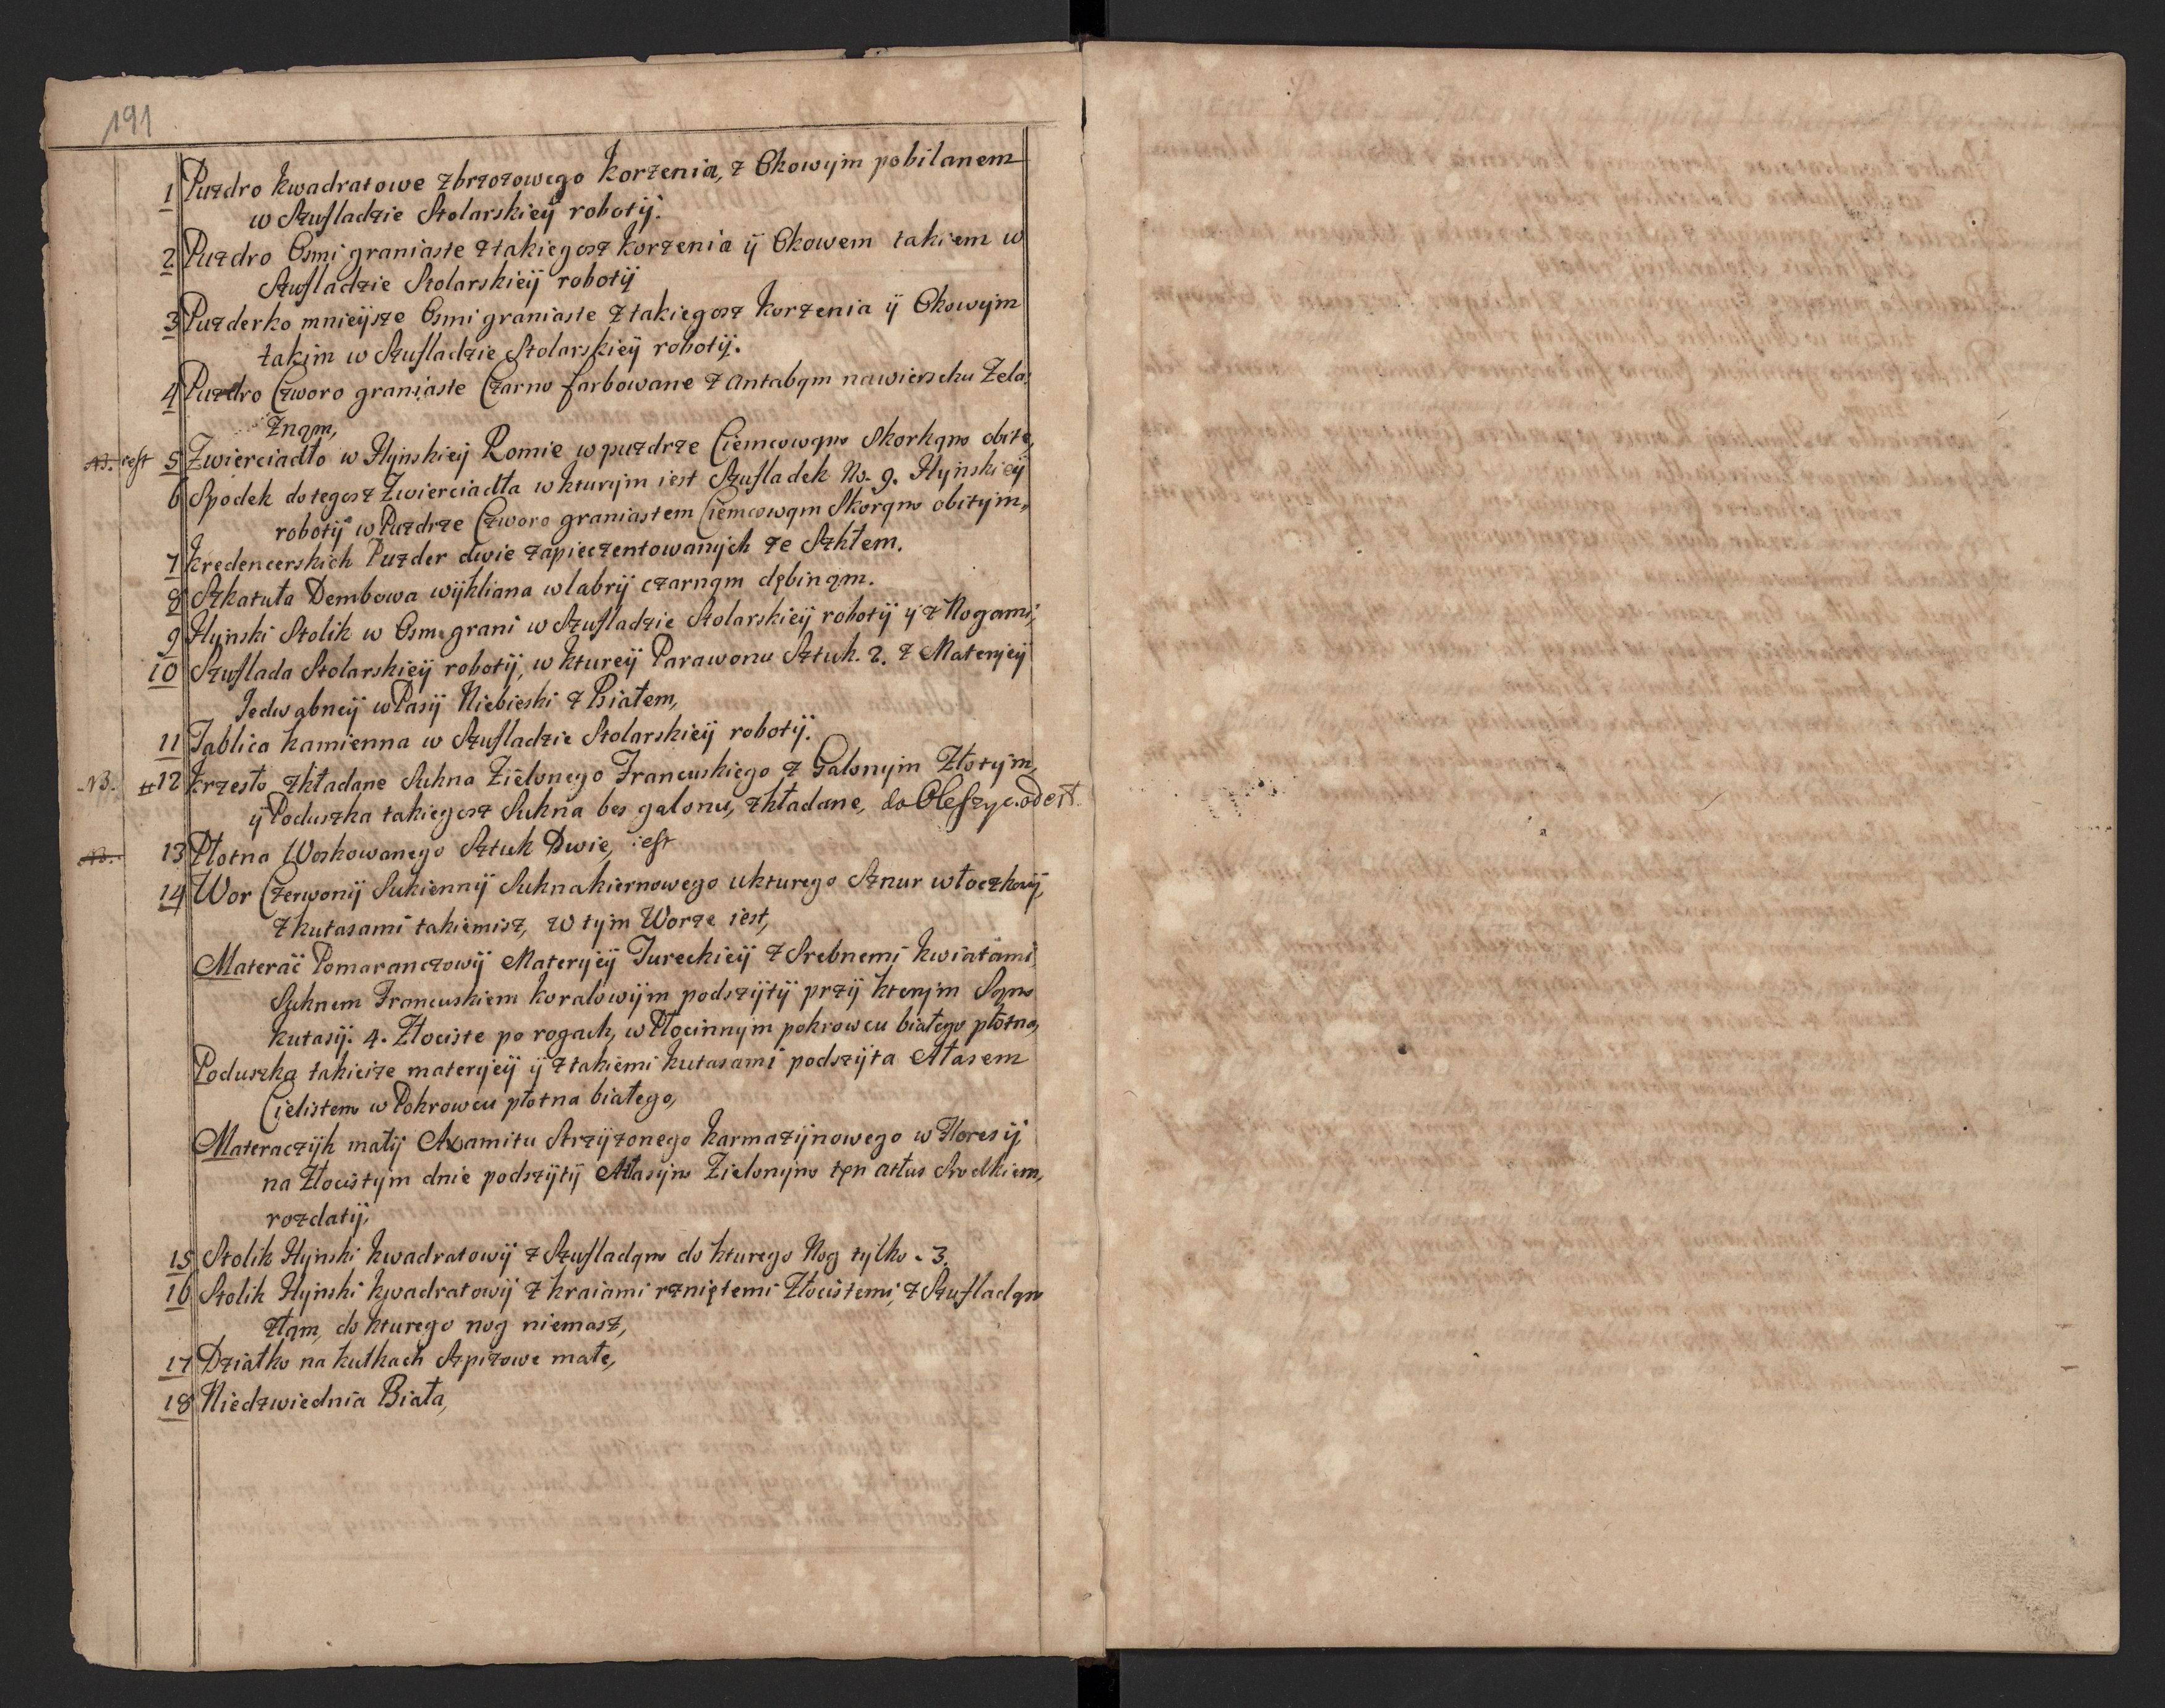 191
1 Puzdro kwadratowe zbrzozowego korzenia, z Okowÿm pobilanem
w Szufladzie Stolarskieÿ robotÿ.
2 Puzdro Osmi graniaste z takiegosz korzenia ÿ Okowem takiem w
Szufladzie Stolarskieÿ robotÿ
3 Puzderko mnieÿsze Osmi graniaste z takiegosz korzenia ÿ Okowÿm
takim w Szufladzie Stolarskieÿ robotÿ.
4 Puzdro Czworo graniaste Czarno farbowane z antabąm nawierzchu Zela,
Znąm,
NB. iest 5 Zwierciadło w Hÿnskieÿ Romie w puzdrze Ciemcowąm Skorkąm obite,
6 Spodek do tegosz Zwierciadła w kturÿm iest Szufladek No. 9. Hÿnskieÿ
robotÿ w Puzdrze Czworo graniastem Ciemcowąm Skorąm obitÿm,
7 kredencerskich Puzder dwie zapieczentowanÿch ze Szkłem.
8 Szkatuła Dembowa wÿkliana wlabrÿ czarnąm dębinąm.
9 Hÿnski Stolik w Osm grani w Szufladzie Stolarskieÿ robotÿ ÿ z Nogami,
10 Szuflada Stolarskieÿ robotÿ, w ktureÿ Parawonu Sztuk. 2. z Materÿeÿ
Jedwabneÿ w Pasÿ Niebieski z Białem,
11 Tablica kamienna w Szufladzie Stolarskieÿ robotÿ.
NB. # 12 krzesło zkładane Sukna Zielonego Francuskiego z Galonÿm Złotÿm,
ÿ Poduszka takiegosz Sukna bes galonu, zkładane, do Oleszyc. odesł.
NB. 13 Płotna Woskowanego Sztuk Dwie, iest
14 Wor Czerwonÿ Sukiennÿ Sukna kiernowego u kturego Sznur włoczkowÿ,
z kutasami takiemisz, w tÿm Worze iest,
Materac Pomaranczowÿ Materÿeÿ Tureckieÿ z Srebnemi kwiatami,
Suknem Francuskiem koralowÿm podszÿtÿ przÿ kterÿm Sąm
kutasÿ. 4. Złociste po rogach, w Płocinnÿm pokrowcu białego płotna,
Poduszka takieize materÿeÿ ÿ z takiemi kutasami podszÿta Atłasem
Cielistem w Pokrowcu płotna białego,
Materaczÿk małÿ Axamitu Strzÿzonego karmazÿnowego w Floresÿ
na Złocistÿm dnie podszÿtÿ Atłasÿm Zielonÿm ten atłas Srodkiem,
rozdatÿ,
15 Stolik Hÿnski kwadratowÿ z Szufladąm do kturego Nog tÿlko. 3.
16 Stolik Hÿnski kwadratowÿ z kraiami rzniętemi Złocistemi, z Szufladąm
złąm, do kturego nog niemasz,
17 Działko na kułkach Szpizowe małe,
18 Niedzwiednia Biała,